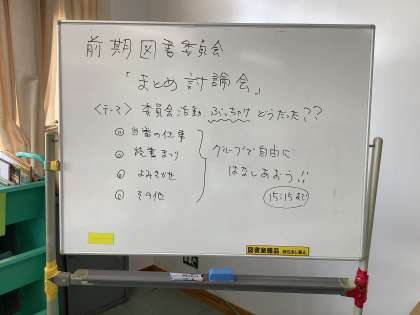 前期図書委員会
「まとめ討論会」
〈テーマ〉委員会活動、ぶっちゃけどうだった??
◎当番の仕事
◎読書まつり
◎よみきかせ
◎その他
グループで自由に
はなしあおう!!
15:15まで
図書館備品 持ち出し禁止